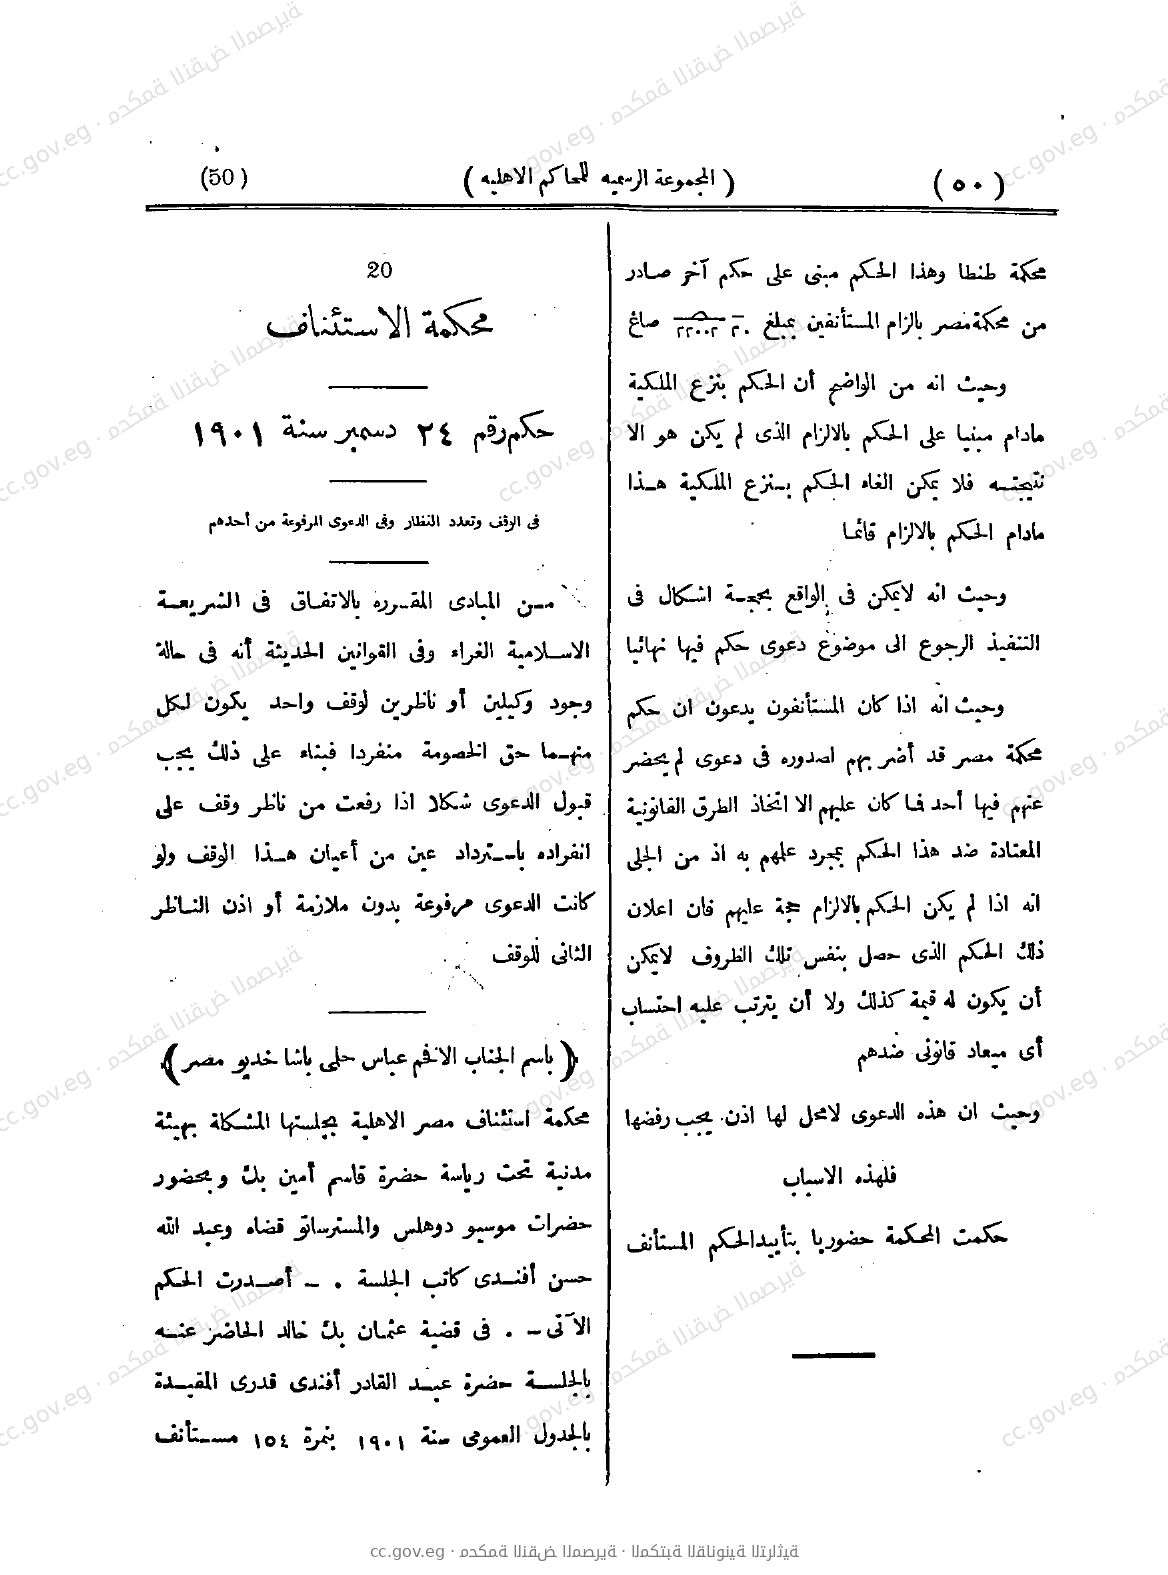 (٥٠)
(المجموعة الرسميه للمحاكم الاهليه)
(50)
محكمة طنطا وهذا الحكم مبنى على حكم آخر صادر
من محكمة مصر بالزام المستأنفين بمبلغ ٣٠ ٢٢٠٠٢ صاغ
وحيث انه من الواضح أن الحكم بنزع الملكية
مادام مبنيا على الحكم بالالزام الذى لم يكن هو الا
نتيجتــه فلا يمكن الغاء الحكم بــنزع الملكية هــذا
مادام الحكم بالالزام قائما
وحيث انه لايمكن فى الواقع بحجـة اشكال فى
التنفيذ الرجوع الى موضوع دعوى حكم فيها نهائيا
وحيث انه اذا كان المستأنفون يدعون ان حكم
محكمة مصر قد أضر بهم لصدوره فى دعوى لم يحضر
عنهم فيها أحد فما كان عليهم الا اتخاذ الطرق القانونية
المعتادة ضد هذا الحكم بمجرد علمهم به اذ من الجلى
انه اذا لم يكن الحكم بالالزام حجة عليهم فان اعلان
ذلك الحكم الذى حصل بنفس تلك الظروف لايمكن
أن يكون له قيمة كذلك ولا أن يترتب عليه احتساب
أى ميعاد قانونى ضدهم
وحيث ان هذه الدعوى لامحل لها اذن يجب رفضها
فلهذه الاسباب
حكمت المحكمة حضوريا بتأييد الحكم المستأنف
20
محكمة الاستئناف
حكم رقم ٢٤ دسمبر سنة ١٩٠١
فى الوقف وتعدد النظار وفى الدعوى المرفوعة من أحدهم
مـن المبادى المقـرره بالاتفـاق فى الشريعـة
الاسـلامية الغراء وفى القوانين الحديثة أنه فى حالة
وجود وكيلين أو ناظرين لوقف واحد يكون لكل
منهـما حق الخصومة منفردا فبناء على ذلك يجب
قبول الدعوى شكلا اذا رفعت من ناظر وقف على
انفراده باسـترداد عين من أعيان هــذا الوقف ولو
كانت الدعوى مرفوعة بدون ملازمة أو اذن النـاظر
الثانى للوقف
(باسم الجناب الافخم عباس حلمى باشا خديو مصر)
محكمة استئناف مصر الاهلية بجلستها المشكلة بهيئة
مدنية تحت رياسة حضرة قاسم أمين بك وبحضور
حضرات موسيو دوهلس والمستر ساتو قضاه وعبد الله
حسن أفنـدى كاتب الجلسة . ــ أصـدرت الحكم
الآتى ــ . فى قضية عثمـان بك خالد الحاضر عنـه
بالجلسـة حضرة عبـد القادر أفندى قدرى المقيـدة
بالجدول العمومى سنة ١٩٠١ بنمرة ١٥٤ مسـتأنف
cc.gov.eg · محكمة النقض المصرية · المكتبة القانونية التراثية